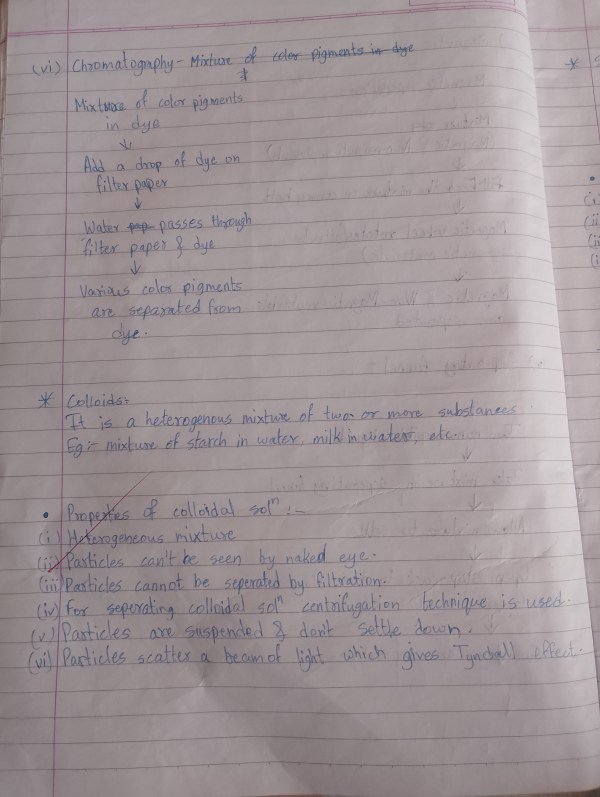 (vi) Chromatography - Mixture of color pigments in dye
Mixture of color pigments
in dye
↓
Add a drop of dye on
filter paper
↓
Water pap passes through
filter paper & dye
↓
Various color pigments
are separated from
dye.
* Colloids:-
It is a heterogenous mixture of two or more substances.
Eg :- mixture of starch in water, milk in water, etc.
• Properties of colloidal solⁿ :-
(i) Heterogeneous mixture
(ii) Particles can't be seen by naked eye.
(iii) Particles cannot be seperated by filtration.
(iv) For seperating colloidal solⁿ centrifugation technique is used.
(v) Particles are suspended & don't settle down.
(vi) Particles scatter a beam of light which gives Tyndall effect.
*
•
(i)
(ii)